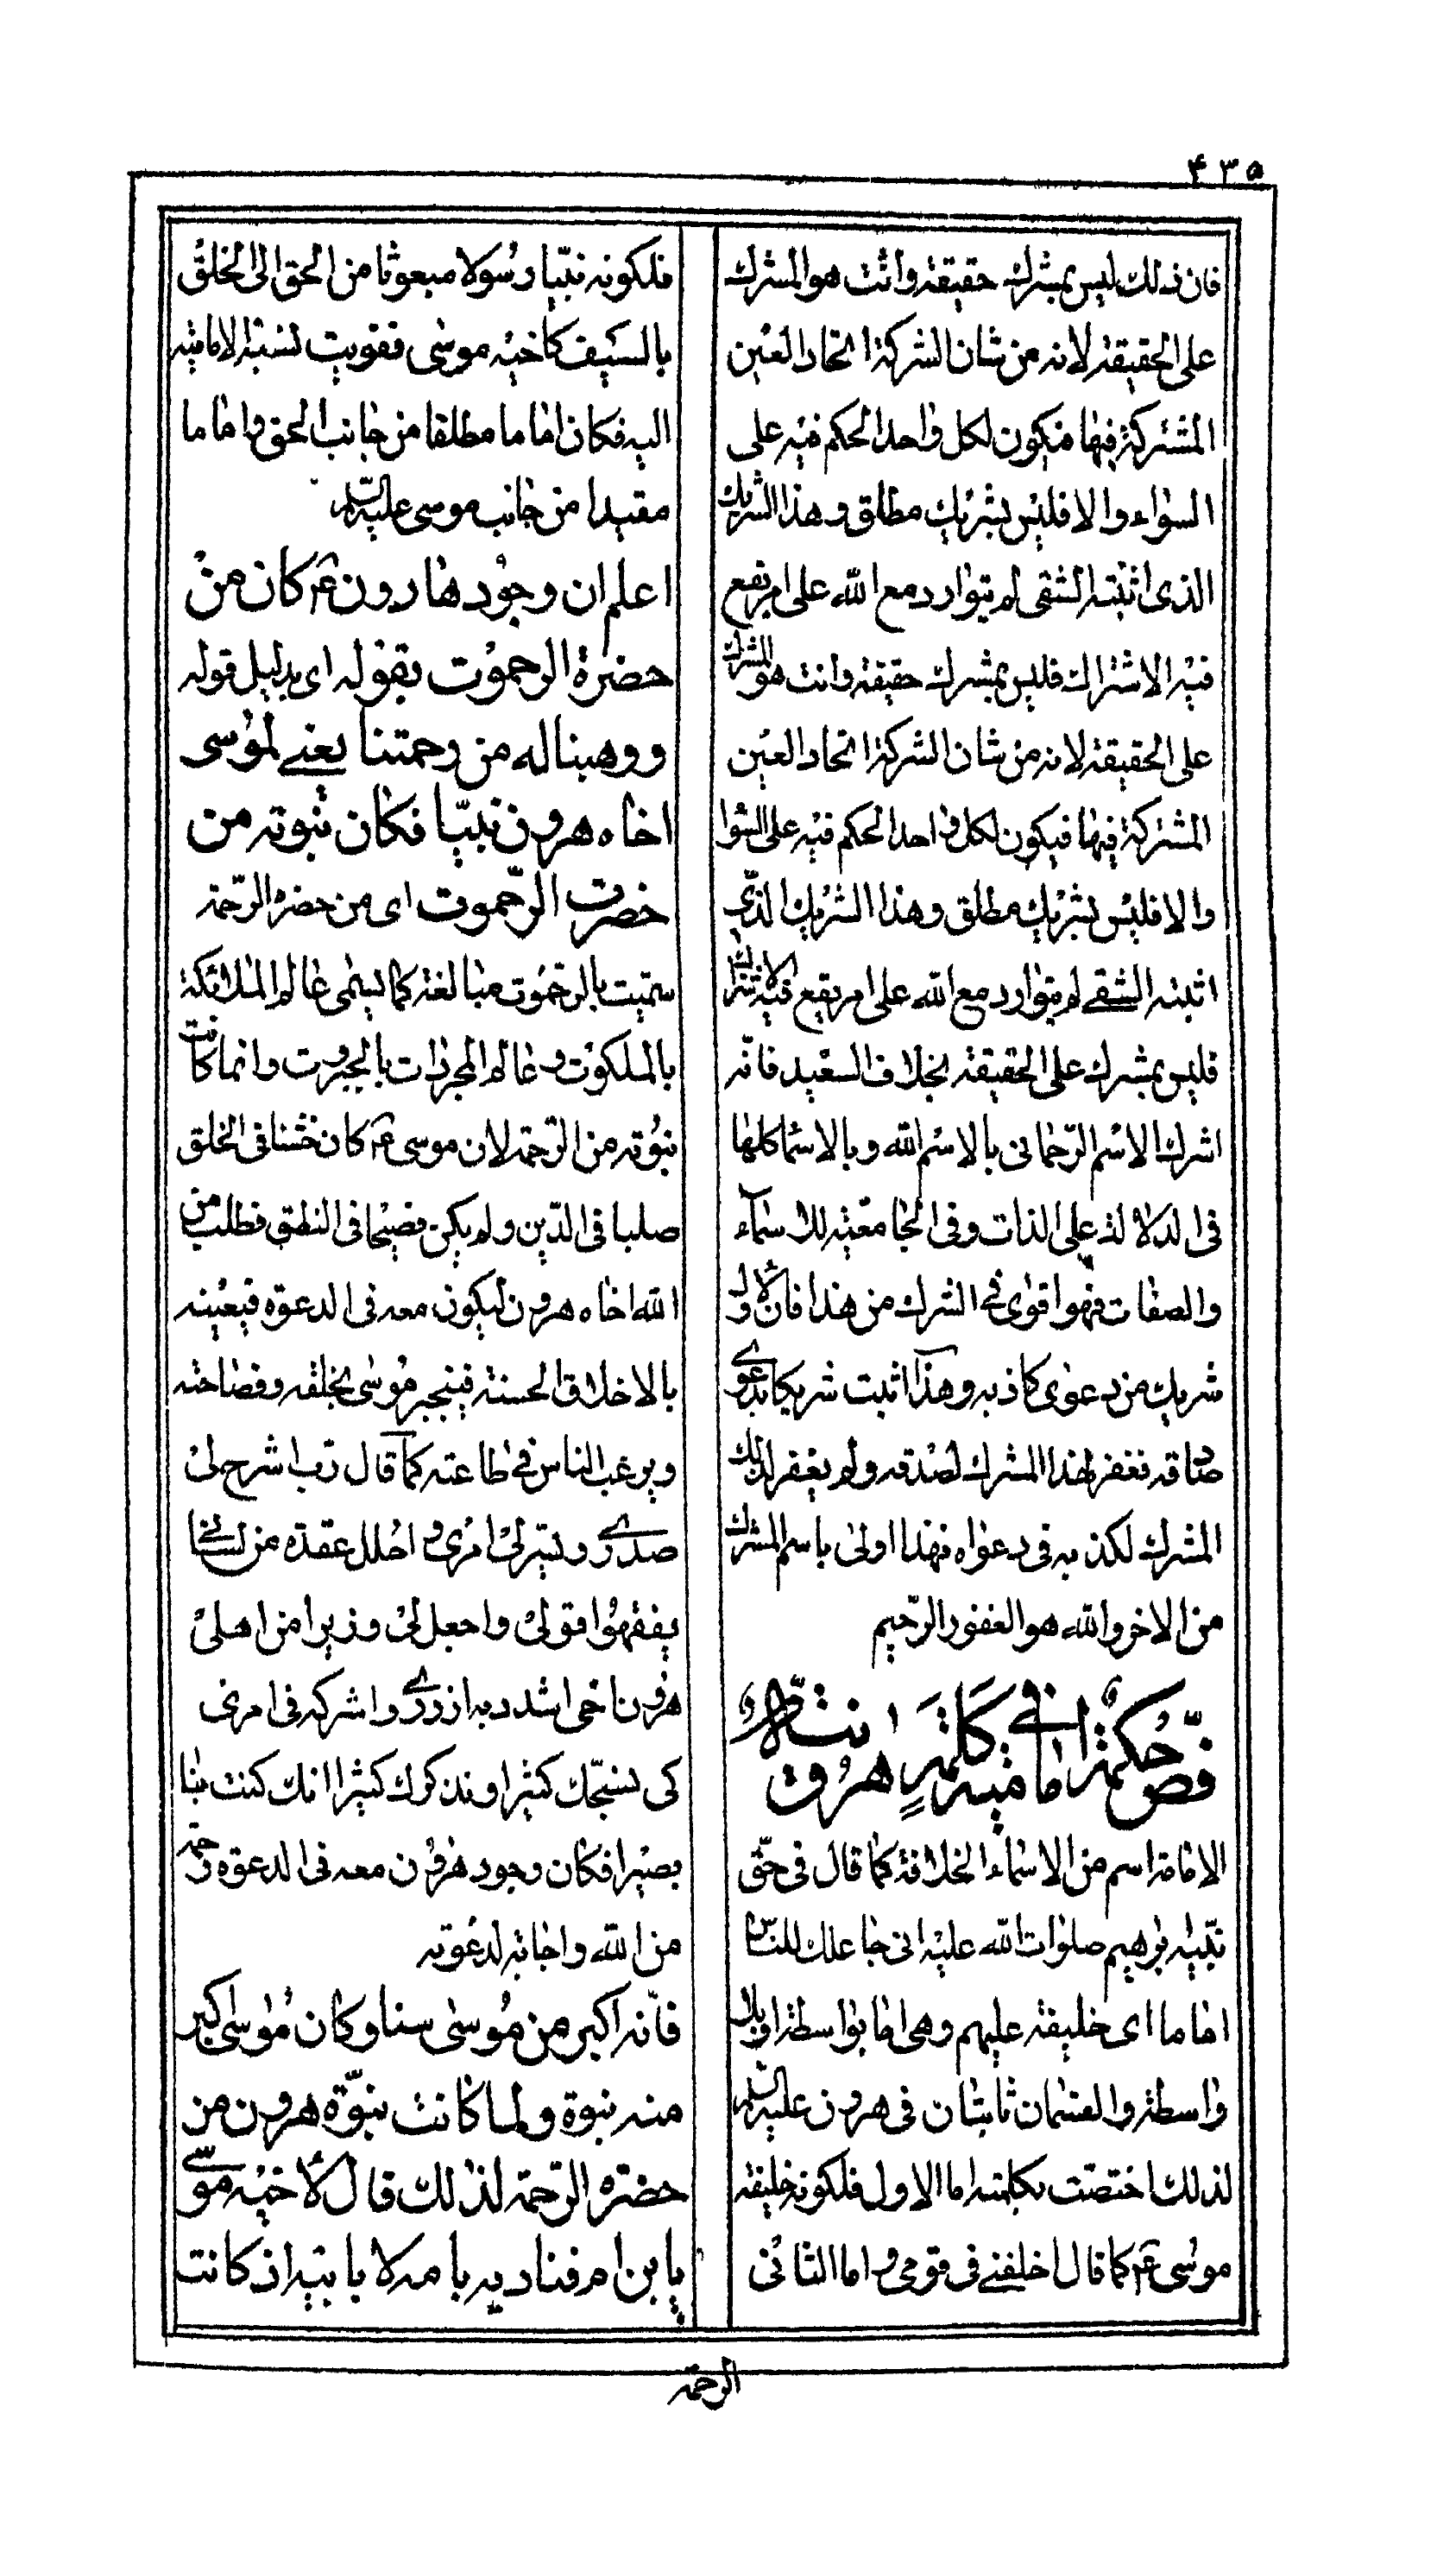 ۴۳۵
فان ذلك ليس بمشرك حقيقة وانت هو المشرك
على الحقيقة لانه من شان الشركة اتحاد العين
المشتركة فيها فيكون لكل واحد الحكم فيه على
السواء والا فليس بشريك مطلق وهذا الشريك
الذى اثبته الشقى لم يتوارد مع الله على امر يقع
فيه الاشتراك فليس بمشرك حقيقة وانت هو المشرك
على الحقيقة لانه من شان الشركة اتحاد العين
المشتركة فيها فيكون لكل واحد الحكم فيه على السوا
والا فليس بشريك مطلق وهذا الشريك الذى
اثبته الشقے لم يتوارد مع الله على امر يقع فيه الاشتراك
فليس بمشرك على الحقيقة بخلاف السعيد فانه
اشرك الاسم الرحمانى بالاسم الله وبالاسما كلها
فى الدلالة على الذات وفى الجامعية للاسمآء
والصفات فهو اقوى فے الشرك من هذا فان الاول
شريك من دعوى كاذبه وهذا اثبت شريكا بدعوے
صادقه فغفر لهذا المشرك لصدقه ولم يغفر لذلك
المشرك لكذبه فى دعواه فهذا اولى باسم المشرك
من الاخر والله هو الغفور الرحيم
فص حكمة امامية فے كلمة هرونية
الامامة اسم من الاسماء الخلافة كما قال فى حق
نبيه ابرهيم صلوات الله عليه انى جاعلك للناس
اماما اى خليفة عليهم وهى اما بواسطة او بلا
واسطة والقسمان ثابتان فى هرون عليه السلام
لذلك اختصت بكلمته اما الاول فلكونه خليفة
موسى ع كما قال اخلفنے فى قومى واما الثانى
فلكونه نبيا رسولا مبعوثا من الحق الى الخلق
بالسيف كاخيه موسى فقويت نسبة الامامية
اليه فكان اماما مطلقا من جانب الحق واماما
مقيدا من جانب موسى عليه السلام
اعلم ان وجود هارون ع كان من
حضرة الرحموت بقوله اى بدليل قوله
ووهبنا له من رحمتنا يعنے لموسى
اخاه هرون نبيا فكان نبوته من
حضرت الرحموت اى من حضرة الرحمة
سميت بالرحموت مبالغة كما يسمى عالم الملائكة
بالملكوت وعالم المجردات بالجبروت وانما كانت
نبوته من الرحمة لان موسى ع كان خشنا فى الخلق
صلبا فى الدين ولم يكن فصيحا فى النطق فطلب من
الله اخاه هرون ليكون معه فى الدعوة فيعينه
بالاخلاق الحسنة فينجبر موسى بخلقه وفصاحته
ويرغب الناس فے طاعته كما قال رب اشرح لى
صدرے ويسر لى امرى واحلل عقدة من لسانے
يفقهوا قولى واجعل لى وزيرا من اهلى
هرون اخى اشدد به ازرے واشركه فى امرى
كى نسبحك كثيرا ونذكرك كثيرا انك كنت بنا
بصيرا فكان وجود هرون معه فى الدعوة رحمة
من الله واجابة لدعوته
فانه اكبر من موسى سنا وكان موسى اكبر
منه نبوة ولما كانت نبوة هرون من
حضرة الرحمة لذلك قال لاخيه موسے
يا بن ام فناديه بامه لا بابيه اذ كانت
الرحمة